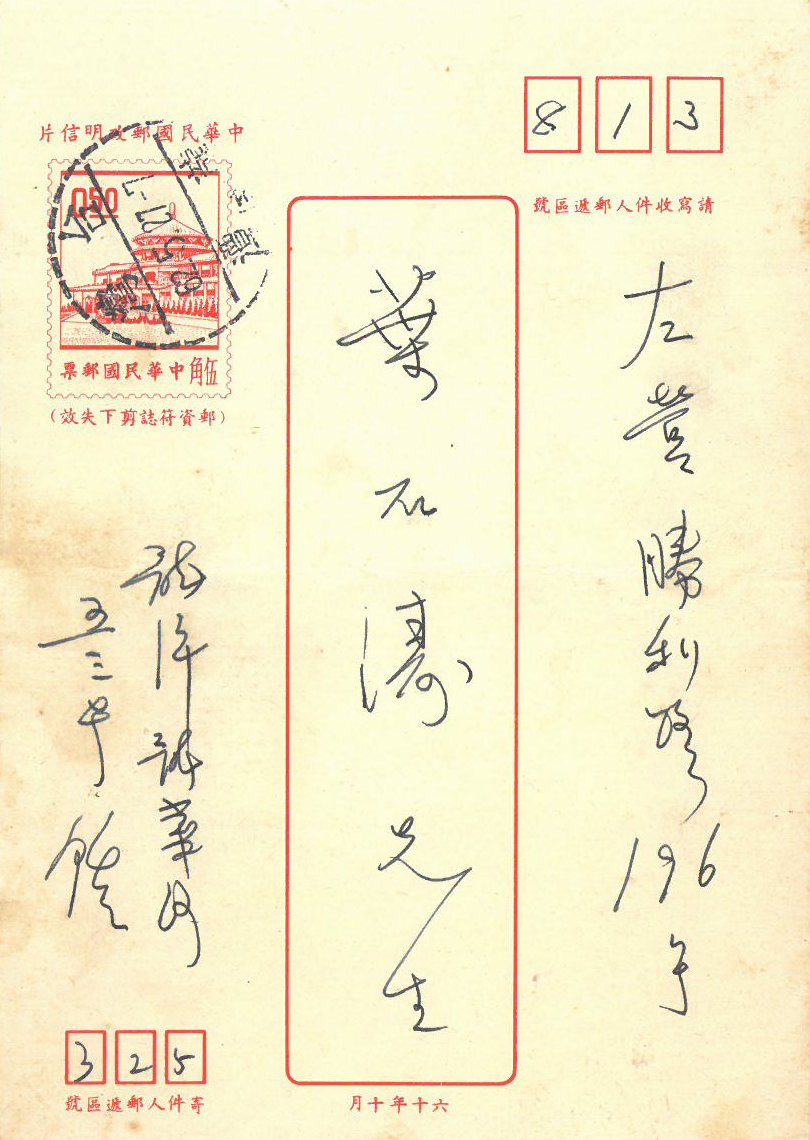 813
請寫收件人郵遞區號
中華民國郵政明信片
0.50
中華民國郵票 伍角
(郵資符誌剪下失效)
左營勝利路196号
葉石濤先生
龍潭
五三号 鍾
325
寄件人郵遞區號
六十年十月